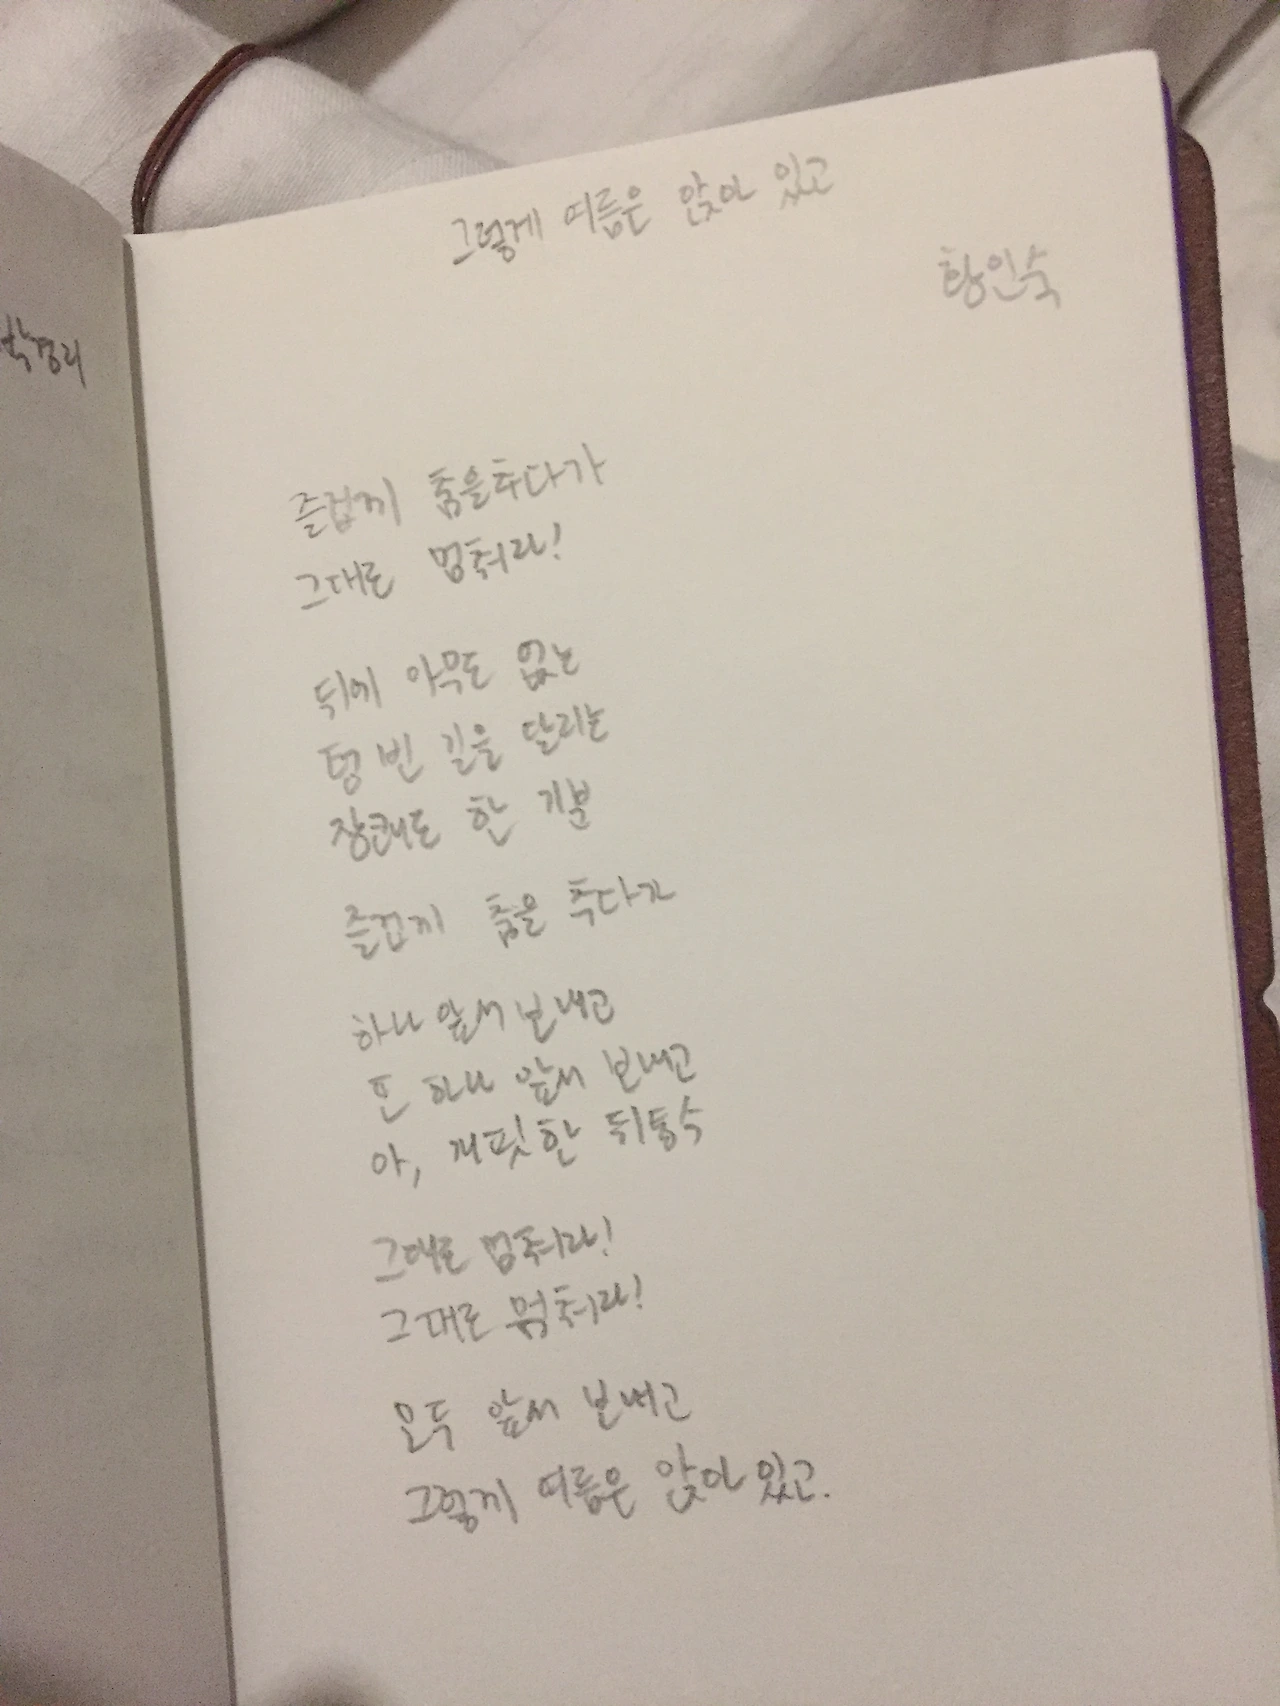 그렇게 여름은 앉아 있고
황인숙
박경리
즐겁게 춤을추다가
그대로 멈춰라!
뒤에 아무도 없는
텅 빈 길을 달리는
장쾌도 한 기분
즐겁게 춤을 추다가
하나 앞서 보내고
또 하나 앞서 보내고
아, 깨핏한 뒤통수
그대로 멈춰라!
그대로 멈춰라!
모두 앞서 보내고
그렇게 여름은 앉아 있고.